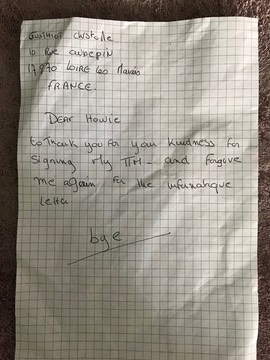 10 Rue
17870 LOIRE Les Marais
FRANCE.
DEAR Howie
to Thank you For your Kindness For
Signing My TTM - and forgive
me again For the
Letter
bye